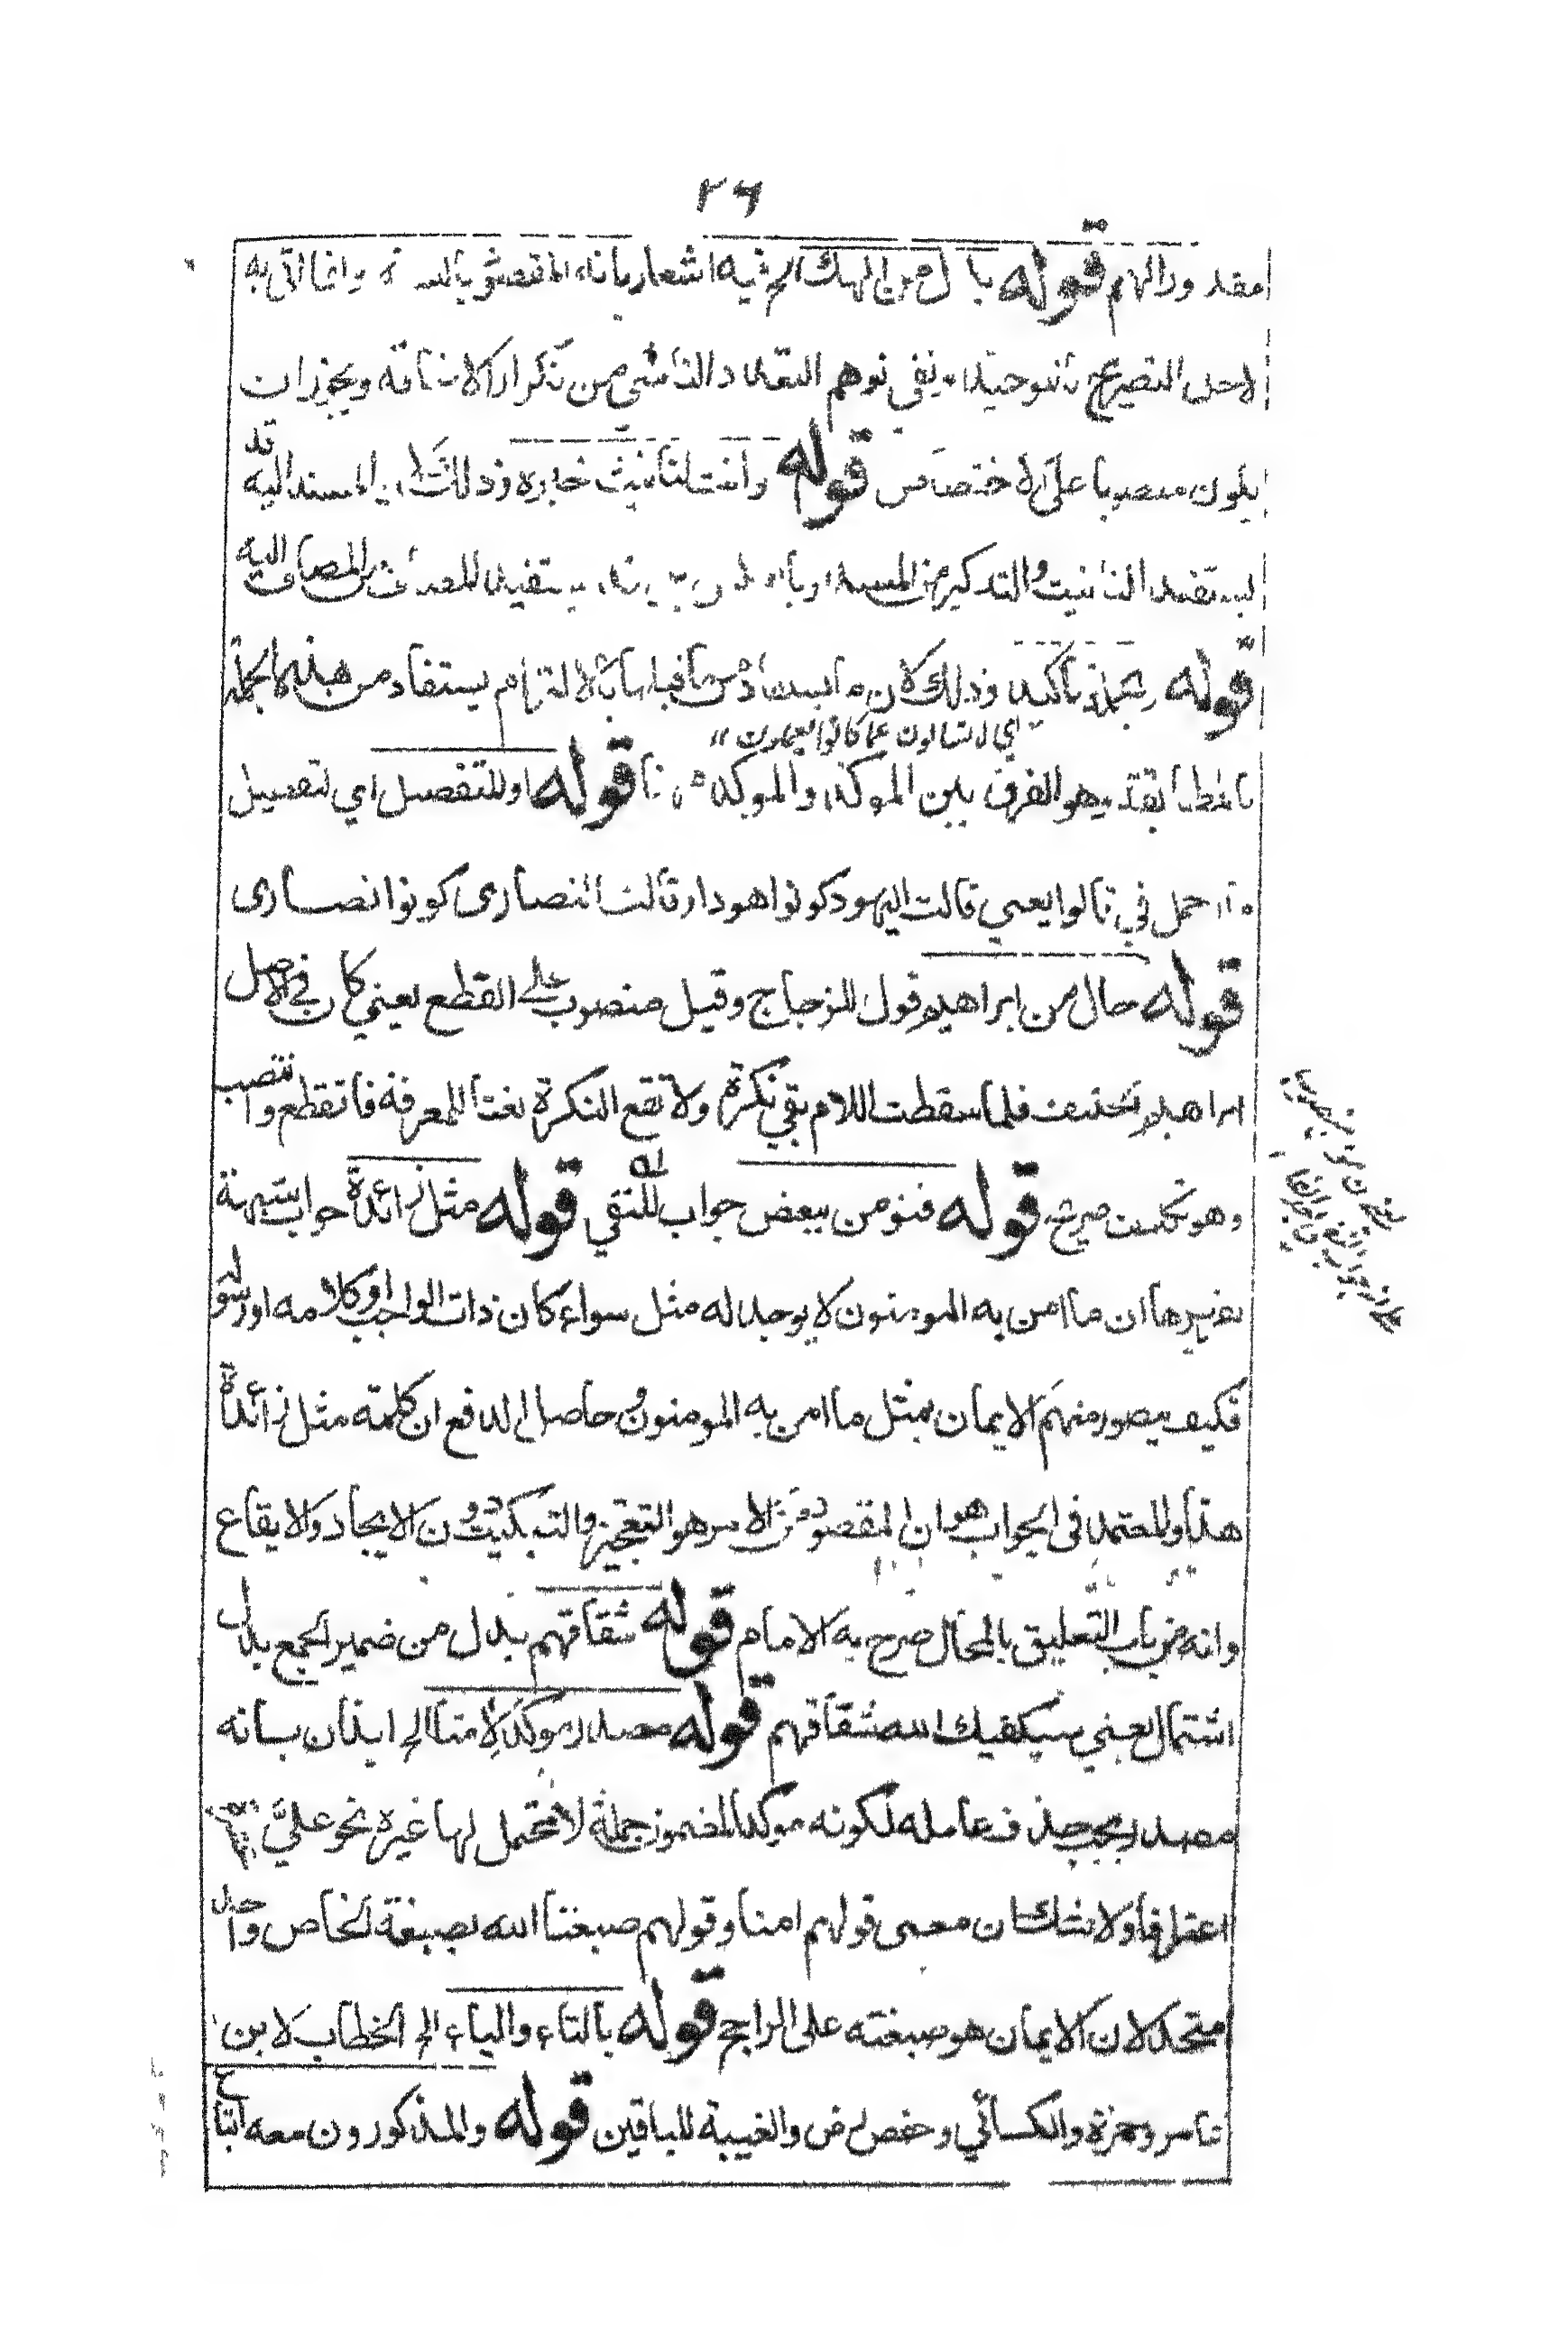 ٢٦
مقدور الهم قوله بدل من الهك الخ فيه اشعار بانه المقصود بالنسبة وانما اتى به
لاجل التصريح بالتوحيد ونفي توهم التعدد الناشي من تكرار الاضافة ويجوز ان
يكون منصوبا على الاختصاص قوله وانت لتانيث خبره وذلك لان المسند اليه قد
يستفيد التانيث والتذكير من المسند المضاف اليه
قوله بجملة تاكيد وذلك لان ما قبلها بالالتزام يستفاد من هذه الجملة
اي لا تسالون عما كانوا يعملون
بالمطابقة وهو الفرق بين الموكد والموكد قوله او للتفصيل اي لتفصيل
ما اجمل في قالوا يعني قالت اليهود كونوا هودا وقالت النصارى كونوا نصارى
قوله حال من ابراهيم قول للزجاج وقيل منصوب على القطع يعني كان في الاصل
ابراهيم الحنيف فلما سقطت اللام بقي نكرة ولا تقع النكرة نعتا للمعرفة فانقطع وانتصب
وهو تحكيف صريح قوله فنومن ببعض جواب للنفي قوله مثل زائدة جواب شبهة
تقريرها ان ما امن به المومنون لا يوجد له مثل سواء كان ذات الواجب او كلامه او رسوله
فكيف يتصور منهم الايمان بمثل ما امن به المومنون وحاصل الدفع ان كلمة مثل زائدة
هذا والمعتمد فى الجواب هو ان المقصود من الامر هو التعجيز والتبكيت دون الايجاد والايقاع
وانه من باب التعليق بالمحال صرح به الامام قوله شقاقهم بدل من ضمير الجمع بدل
اشتمال يعني سيكفيك الله شقاقهم قوله مصدر موكد لامنا الخ ايذان بانه
مصدر يجب حذف عامله لكونه موكدا لمضمون جملة لا محتمل لها غيره نحو علىَّ
اعترافا ولا شك ان معنى قولهم امنا وقولهم صبغنا الله بصبغة الخاص واحد
متحد لان الايمان هو صبغته على الراجح قوله بالتاء والياء الخ الخطاب لابن
عامر وحمزة والكسائي وحفص رض والغيبة للباقين قوله والمذكورون معه اتباع